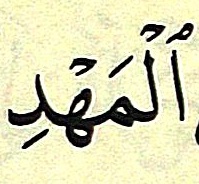 ٱلۡمَهۡدِ